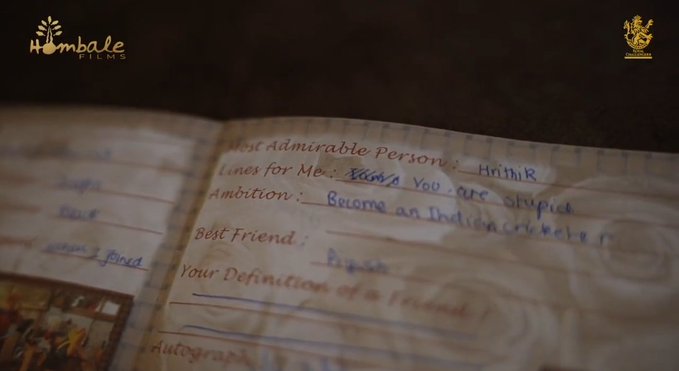 Hombale
FILMS
ROYAL
CHALLENGERS
Most Admirable Person : Hrithik
Lines for Me : You are stupid
Ambition : Become an Indian cricketer
Best Friend :
Your Definition of a Friend :
joined
Autograph